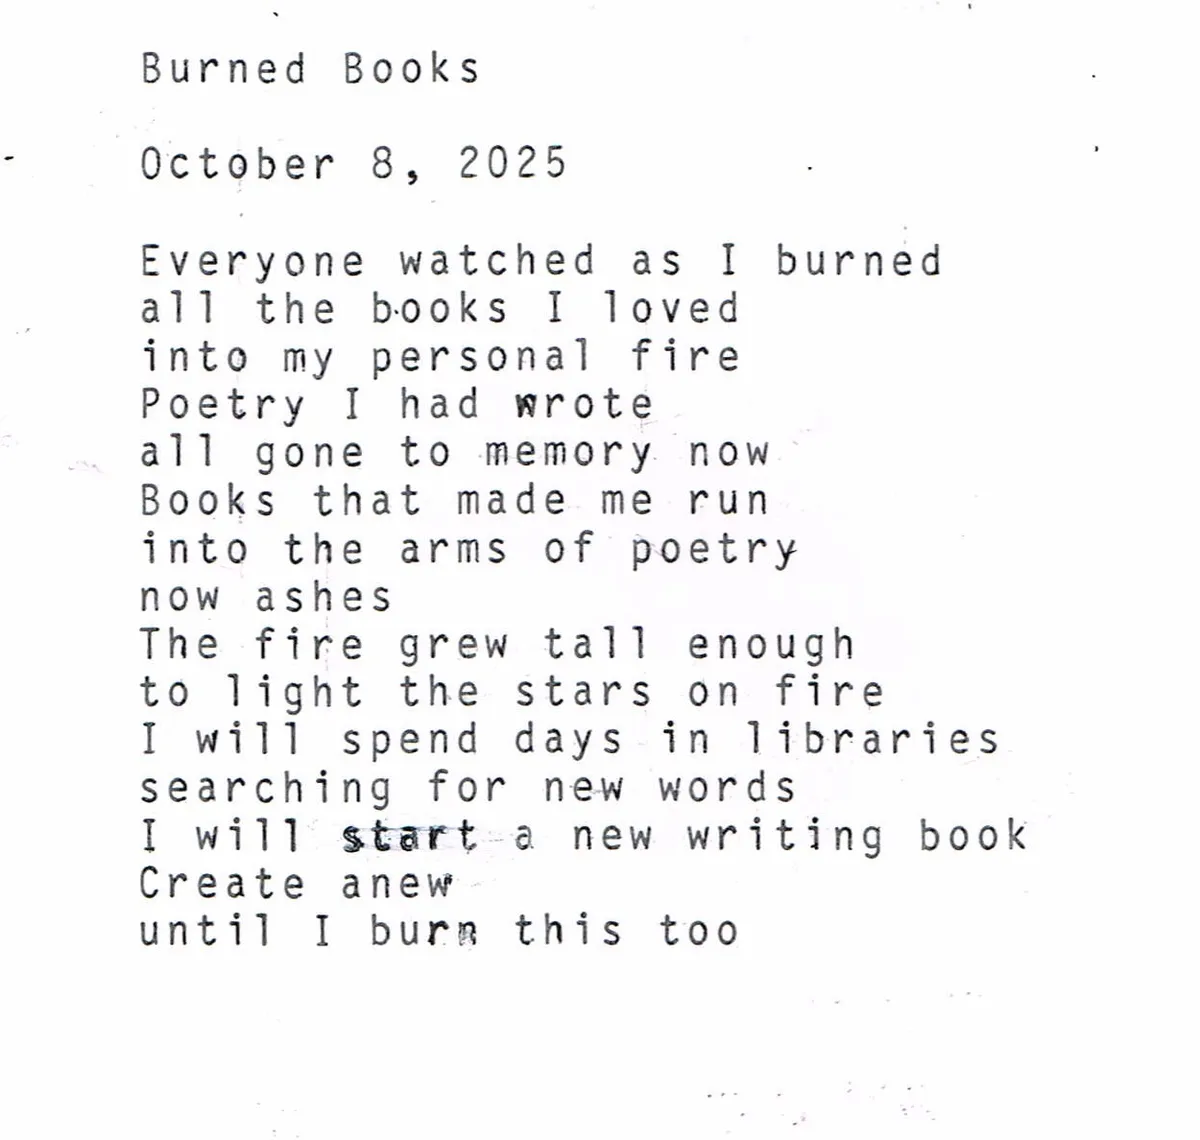 Burned Books
October 8, 2025
Everyone watched as I burned
all the books I loved
into my personal fire
Poetry I had wrote
all gone to memory now
Books that made me run
into the arms of poetry
now ashes
The fire grew tall enough
to light the stars on fire
I will spend days in libraries
searching for new words
I will start a new writing book
Create anew
until I burn this too